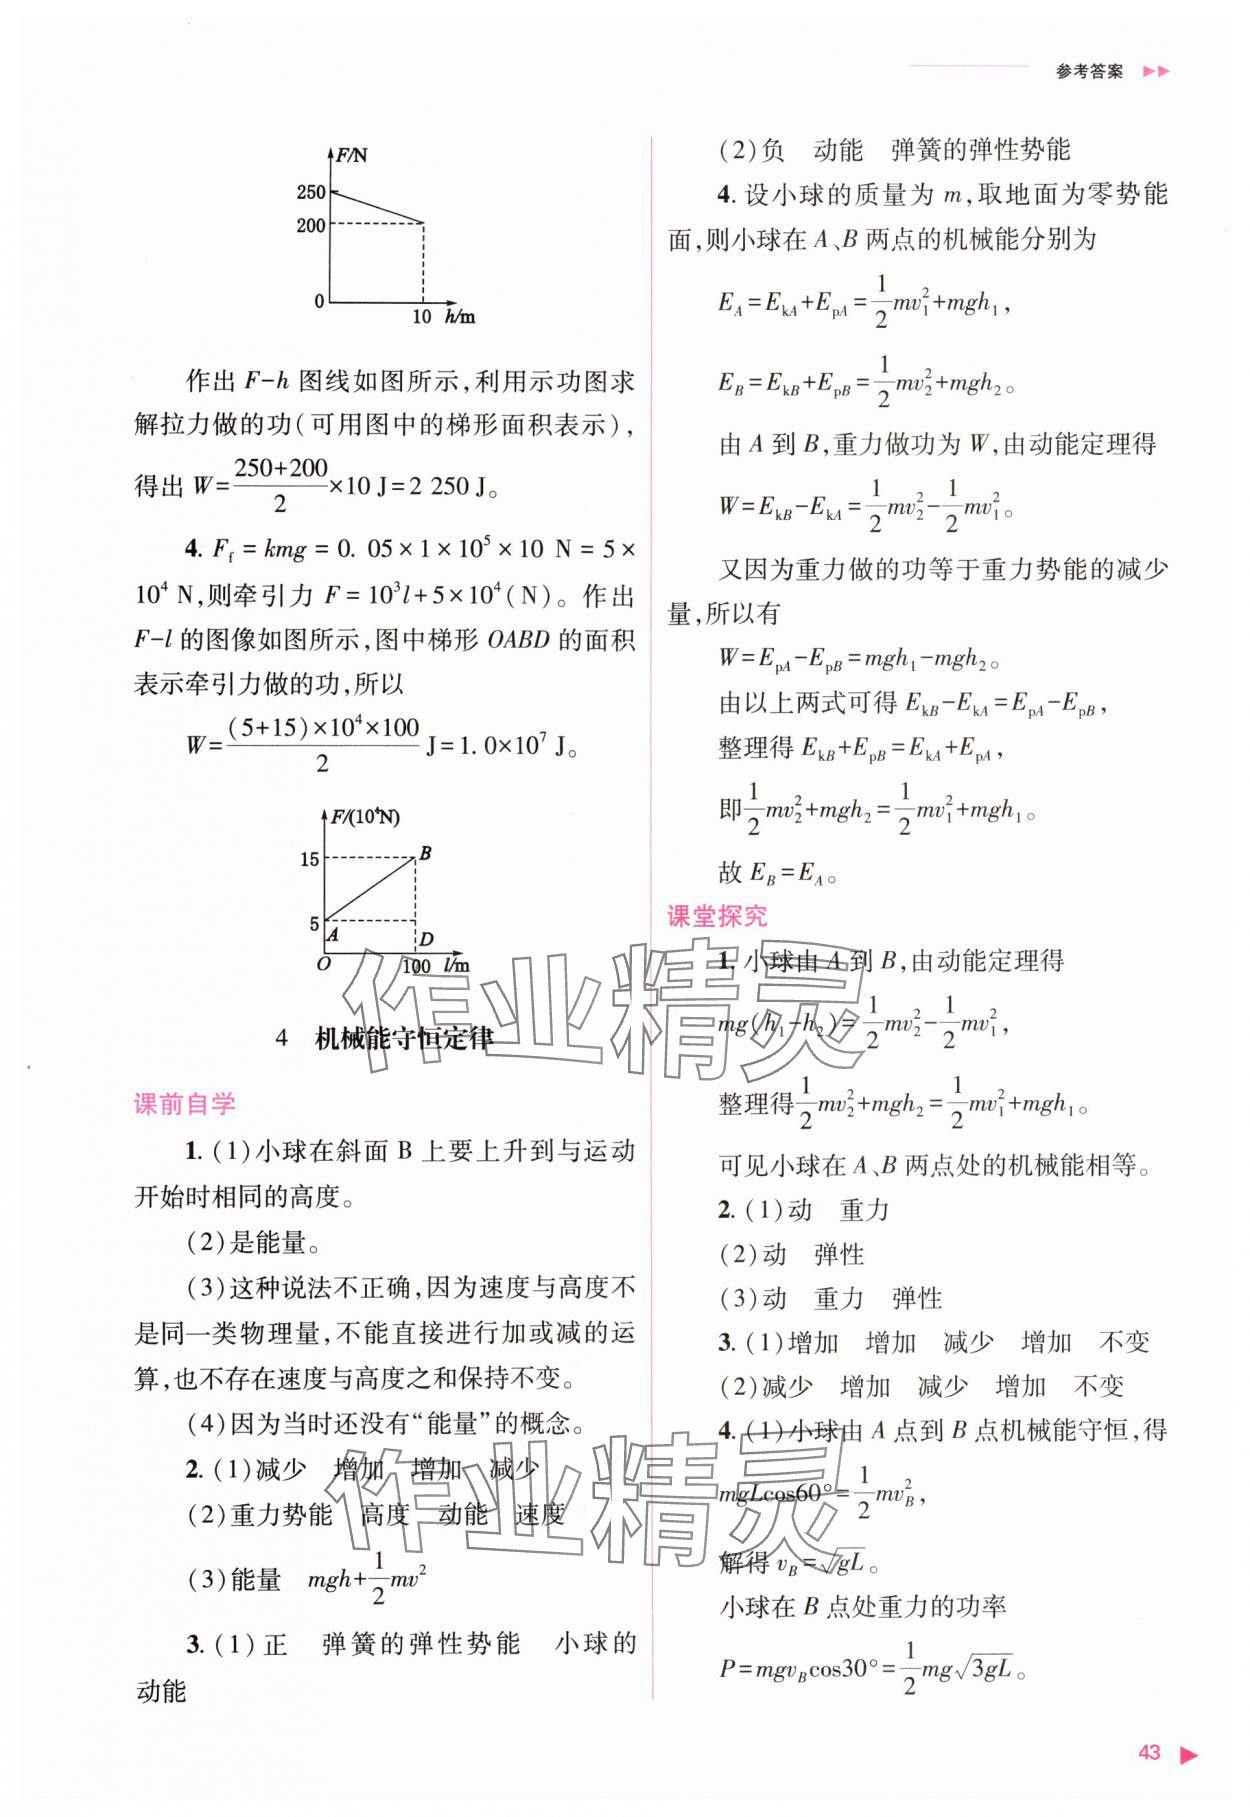 参考答案 ▶▶
F/N
250
200
0
10 h/m
作出 F-h 图线如图所示,利用示功图求
解拉力做的功(可用图中的梯形面积表示),
得出 W=\frac{250+200}{2}×10 J=2 250 J。
4. F_f = kmg = 0. 05×1×10^5×10 N = 5×
10^4 N,则牵引力 F = 10^3l+5×10^4(N)。作出
F-l 的图像如图所示,图中梯形 OABD 的面积
表示牵引力做的功,所以
W=\frac{(5+15)×10^4×100}{2} J=1. 0×10^7 J。
F/(10^4N)
15
B
5
A
D
O
100 l/m
4 机械能守恒定律
课前自学
1. (1)小球在斜面 B 上要上升到与运动
开始时相同的高度。
(2)是能量。
(3)这种说法不正确,因为速度与高度不
是同一类物理量,不能直接进行加或减的运
算,也不存在速度与高度之和保持不变。
(4)因为当时还没有“能量”的概念。
2. (1)减少 增加 增加 减少
(2)重力势能 高度 动能 速度
(3)能量 mgh+\frac{1}{2}mv^2
3. (1)正 弹簧的弹性势能 小球的
动能
(2)负 动能 弹簧的弹性势能
4. 设小球的质量为 m,取地面为零势能
面,则小球在 A、B 两点的机械能分别为
E_A=E_{kA}+E_{pA}=\frac{1}{2}mv_1^2+mgh_1,
E_B=E_{kB}+E_{pB}=\frac{1}{2}mv_2^2+mgh_2。
由 A 到 B,重力做功为 W,由动能定理得
W=E_{kB}-E_{kA}=\frac{1}{2}mv_2^2-\frac{1}{2}mv_1^2。
又因为重力做的功等于重力势能的减少
量,所以有
W=E_{pA}-E_{pB}=mgh_1-mgh_2。
由以上两式可得 E_{kB}-E_{kA}=E_{pA}-E_{pB},
整理得 E_{kB}+E_{pB}=E_{kA}+E_{pA},
即\frac{1}{2}mv_2^2+mgh_2=\frac{1}{2}mv_1^2+mgh_1。
故 E_B=E_A。
课堂探究
1. 小球由 A 到 B,由动能定理得
mg(h_1-h_2)=\frac{1}{2}mv_2^2-\frac{1}{2}mv_1^2,
整理得\frac{1}{2}mv_2^2+mgh_2=\frac{1}{2}mv_1^2+mgh_1。
可见小球在 A、B 两点处的机械能相等。
2. (1)动 重力
(2)动 弹性
(3)动 重力 弹性
3. (1)增加 增加 减少 增加 不变
(2)减少 增加 减少 增加 不变
4. (1)小球由 A 点到 B 点机械能守恒,得
mgLcos60°=\frac{1}{2}mv_B^2,
解得 v_B=\sqrt{gL}。
小球在 B 点处重力的功率
P=mgv_Bcos30°=\frac{1}{2}mg\sqrt{3gL}。
作业精灵
作业精灵
43 ▶